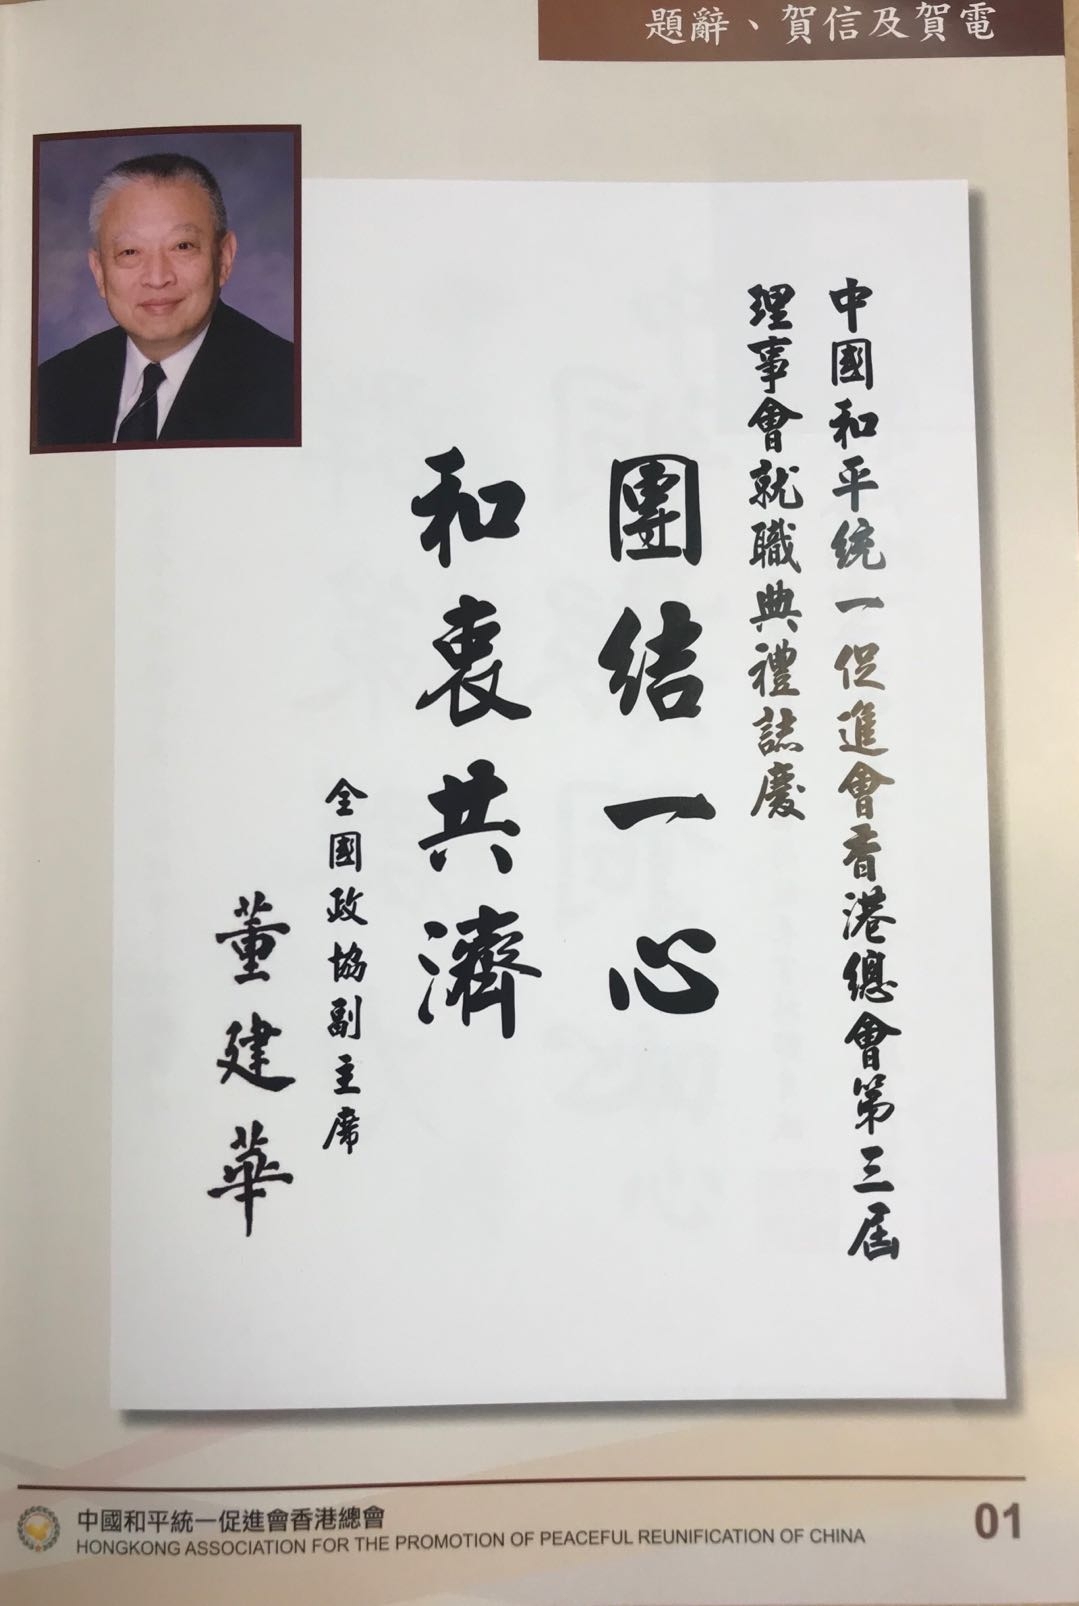 題辭、賀信及賀電
中國和平統一促進會香港總會第三屆
理事會就職典禮誌慶
團結一心
和衷共濟
全國政協副主席
董建華
中國和平統一促進會香港總會
HONGKONG ASSOCIATION FOR THE PROMOTION OF PEACEFUL REUNIFICATION OF CHINA
01